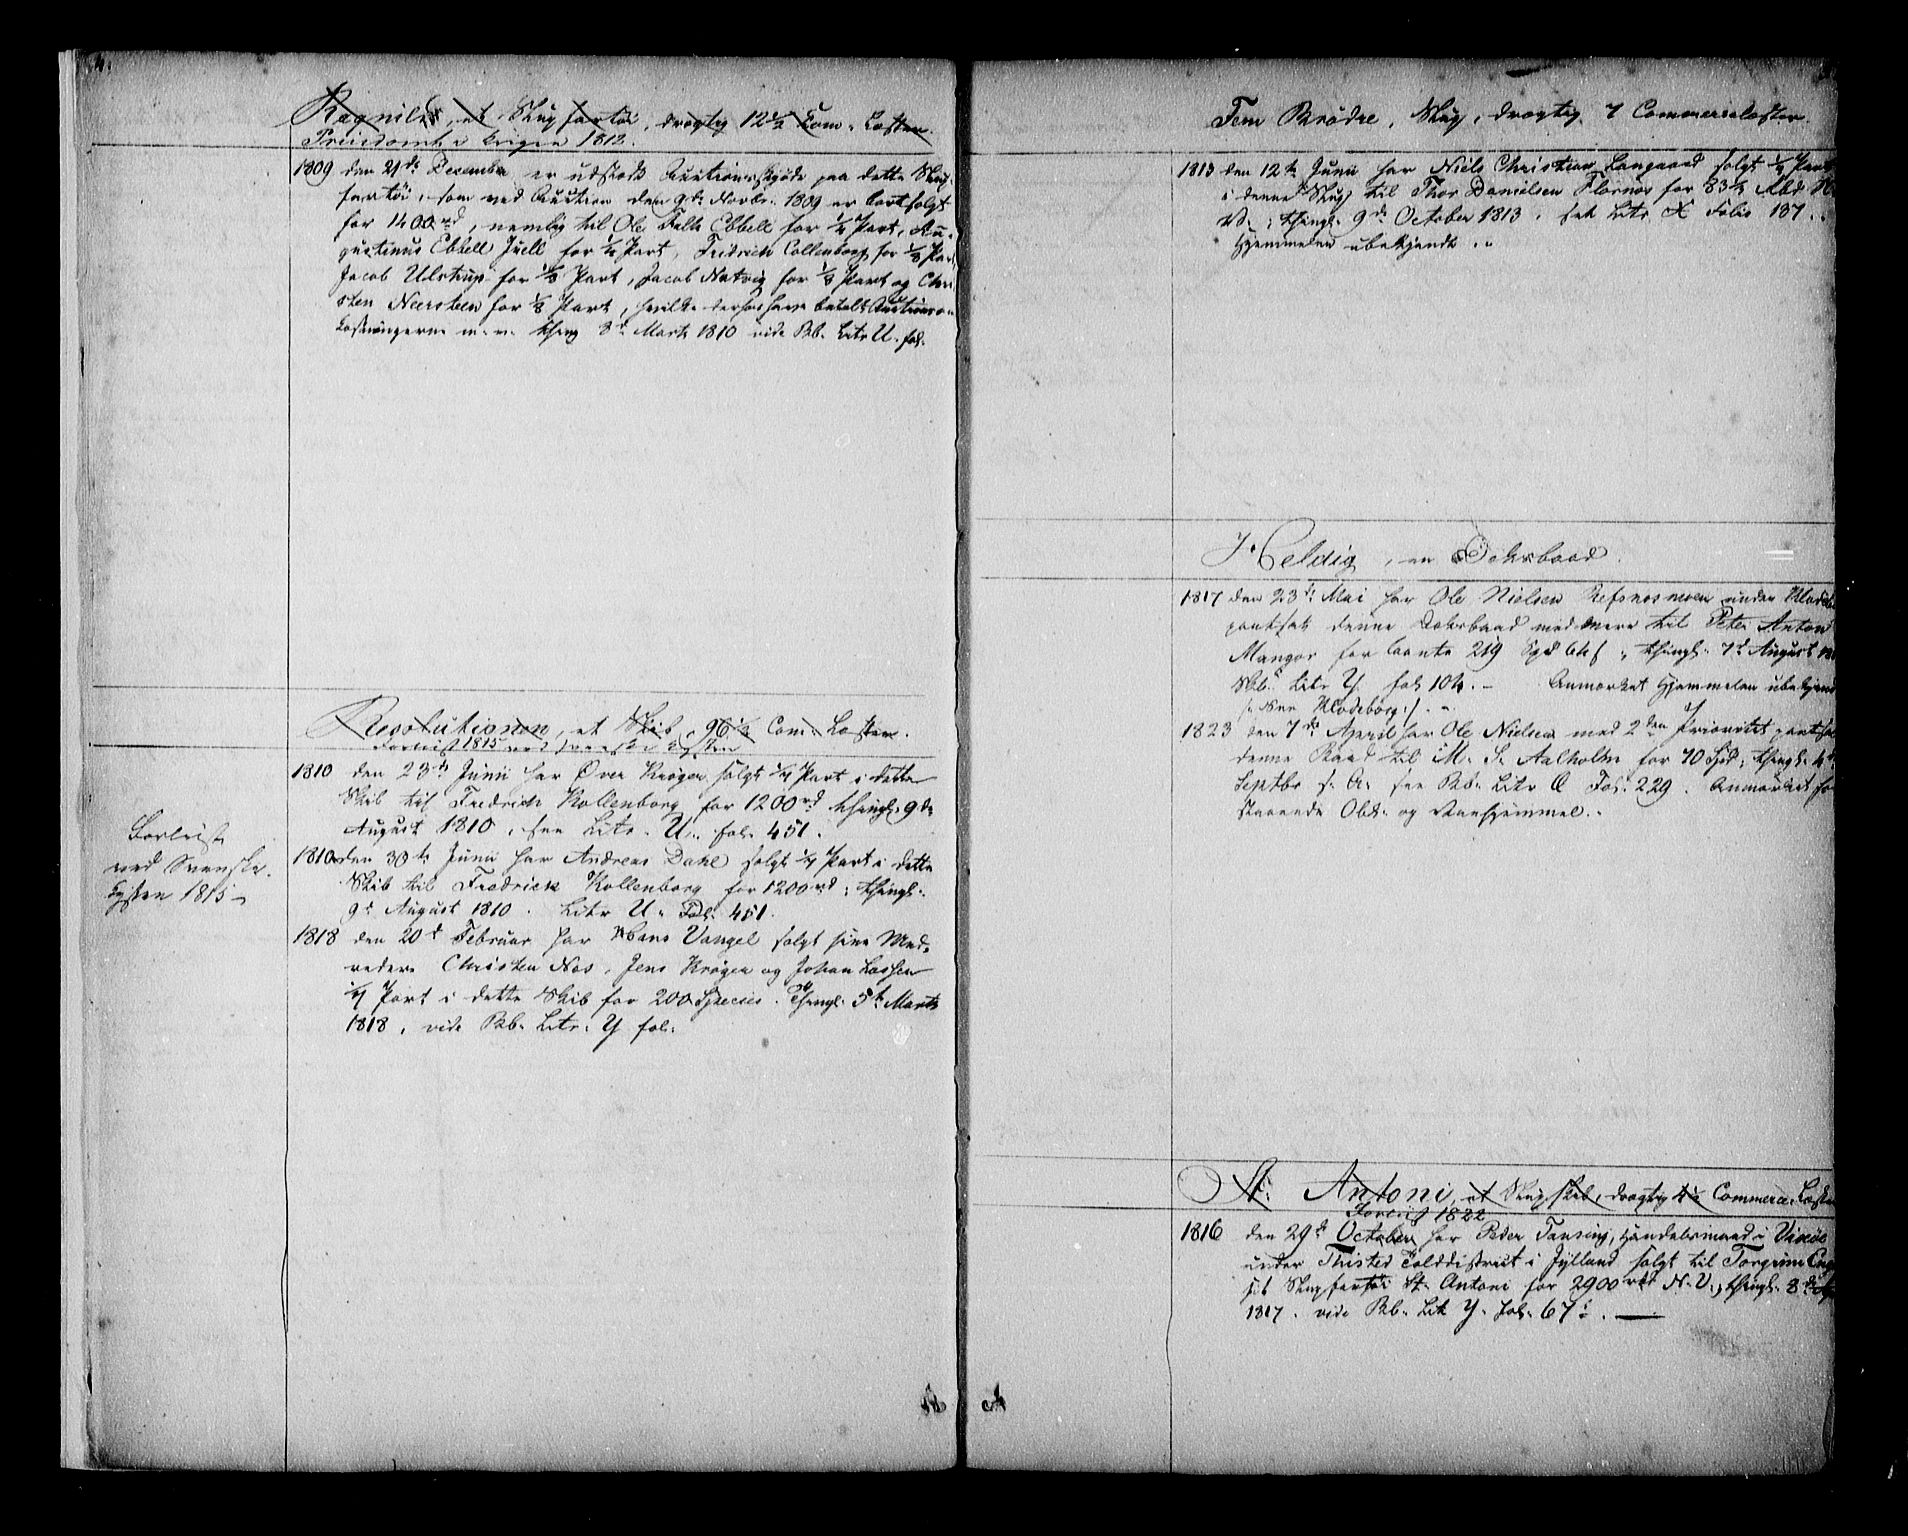 4.
Ragnild, et Slupfartøi, drægtig 12 1/2 Com. Læster.
Priisdømt i krigen 1812.
1809 den 21de December er udstædt Auctionsskjøde paa dette Slup-
fartøi, som ved Auction den 9de Novbr. 1809 er bortsolgt
for 1400 rd, nemlig til Ole Falk Ebbell for 1/4 Part, Au-
gustinus Ebbell Juell for 1/4 Part, Fridrich Collenborg for 1/8 Part,
Jacob Ulstrup for 1/8 Part, Jacob Natvig for 1/8 Part og Chri-
sten Neersteen for 1/8 Part, hvilke derfor have betalt Auctions-
kostningerne m. v. thingl. 3d Marts 1810 vide Pb. Litr. U. fol.
Resolutionen, et Skib, 96 1/2 Com. Læster.
Forliist 1815 ved svenske kysten
Forliist
ved Svenske-
kysten 1815
1810 den 23de Junii har Over Krøger solgt 1/4 Part i dette
Skib til Fredrich Kollenborg for 1200 rd thingl. 9de
August 1810, see Litr. U. fol. 451.
1810 den 30te Junii har Andreas Dahl solgt 1/4 Part i dette
Skib til Fredrick Kollenborg for 1200 rd; thingl.
9d August 1810. Litr U. Fol. 451.
1818 den 20d Februar har Hans Vangel solgt sine Med-
redere Christen Nøs, Jens Krøger og Johan Lassen
1/4 Part i dette Skib for 200 Species. Thingl. 5t Marts
1818, vide Pb. Litr. Y fol.
Fem Brødre, Slup, drægtig 7 Commerselæster.
1813 den 12te Junii har Niels Christian Langaard solgt 1/2 Part
i denne Slup til Thor Danielsen Flørnes for 83 1/2 Rbd N.
V.; thingl. 9de October 1813, see Litr. X Folio 187.
Hjemmelen ubekjendt.
Heldig, en Dæksbaad.
1817 den 23d Mai har Ole Nielsen Refsnesmoen under
pantsat denne Dæksbaad med mere til Peter Anton
Mangor for laante 219 Spd 64 s; thingl. 7d August
Pb. Litr Y. fol 104. - Anmærket Hjemmelen ubekjendt
1823 den 7de April har Ole Nielsen med 2den Prioritet pantsat
denne Baad til M. S. Aalholm for 70 Spd; thingl. 4d
Septbr s. A. see Pb. Litr Æ Fol. 229. Anmærket for
staaende Obl. og Vanhjemmel.
St. Antoni, et Slupskib, drægtig 4 1/2 Commerce Læster
Forliist 1822
1816 den 29d October har Peder Tansing, Handelsmand i
under Thisted Tolddistrict i Jylland solgt til Torgrim
sit Slupfartøi St. Antoni for 2900 rbd N. V., thingl. 8de
1817. vide Pb. Litr Y. fol. 67.